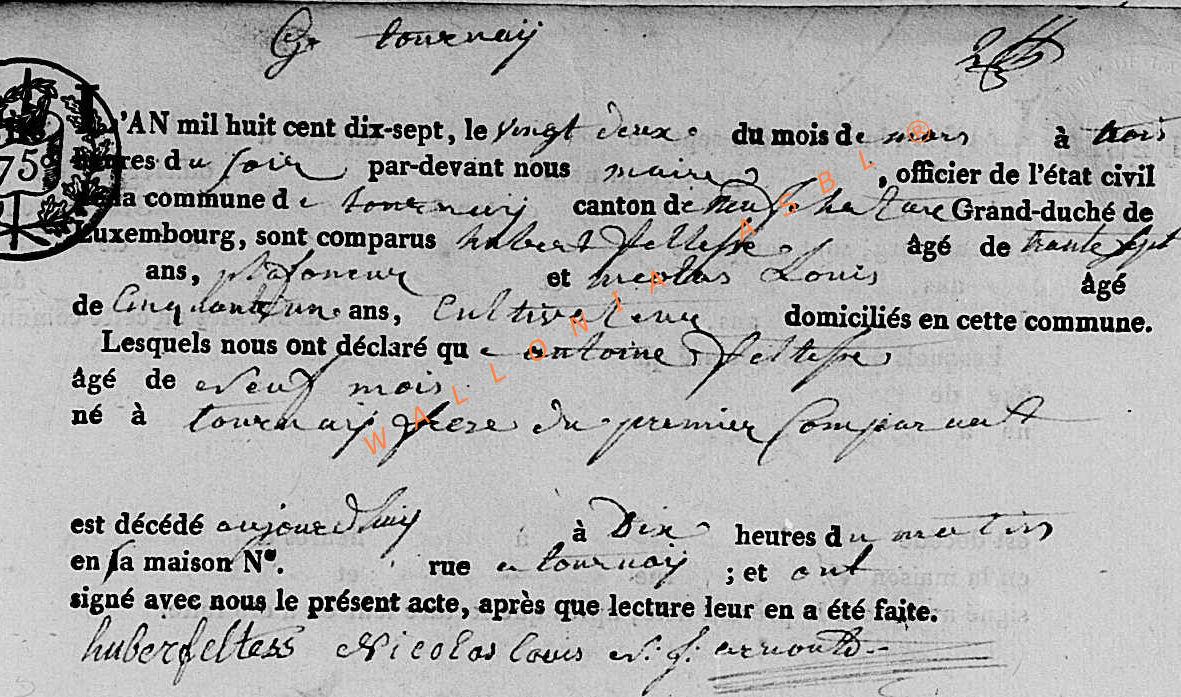 tournay
L'AN mil huit cent dix-sept, le vingt deux du mois de mars à trois
heures du soir par-devant nous maire, officier de l'état civil
de la commune de tournay canton de neufchateau Grand-duché de
Luxembourg, sont comparus hubert feltesse âgé de trante sept
ans, plafoneur et nicolas Louis âgé
de Cinquante un ans, Cultivateur domiciliés en cette commune.
Lesquels nous ont déclaré que antoine feltesse
âgé de neuf mois
né à tournay du premier Comparant
est décédé aujourdhuy à Dix heures du matin
en sa maison N°. rue a tournay ; et ont
signé avec nous le présent acte, après que lecture leur en a été faite.
huberfeltess Nicolas louis N. J. arnould
75
WALLONIA ASBL ®